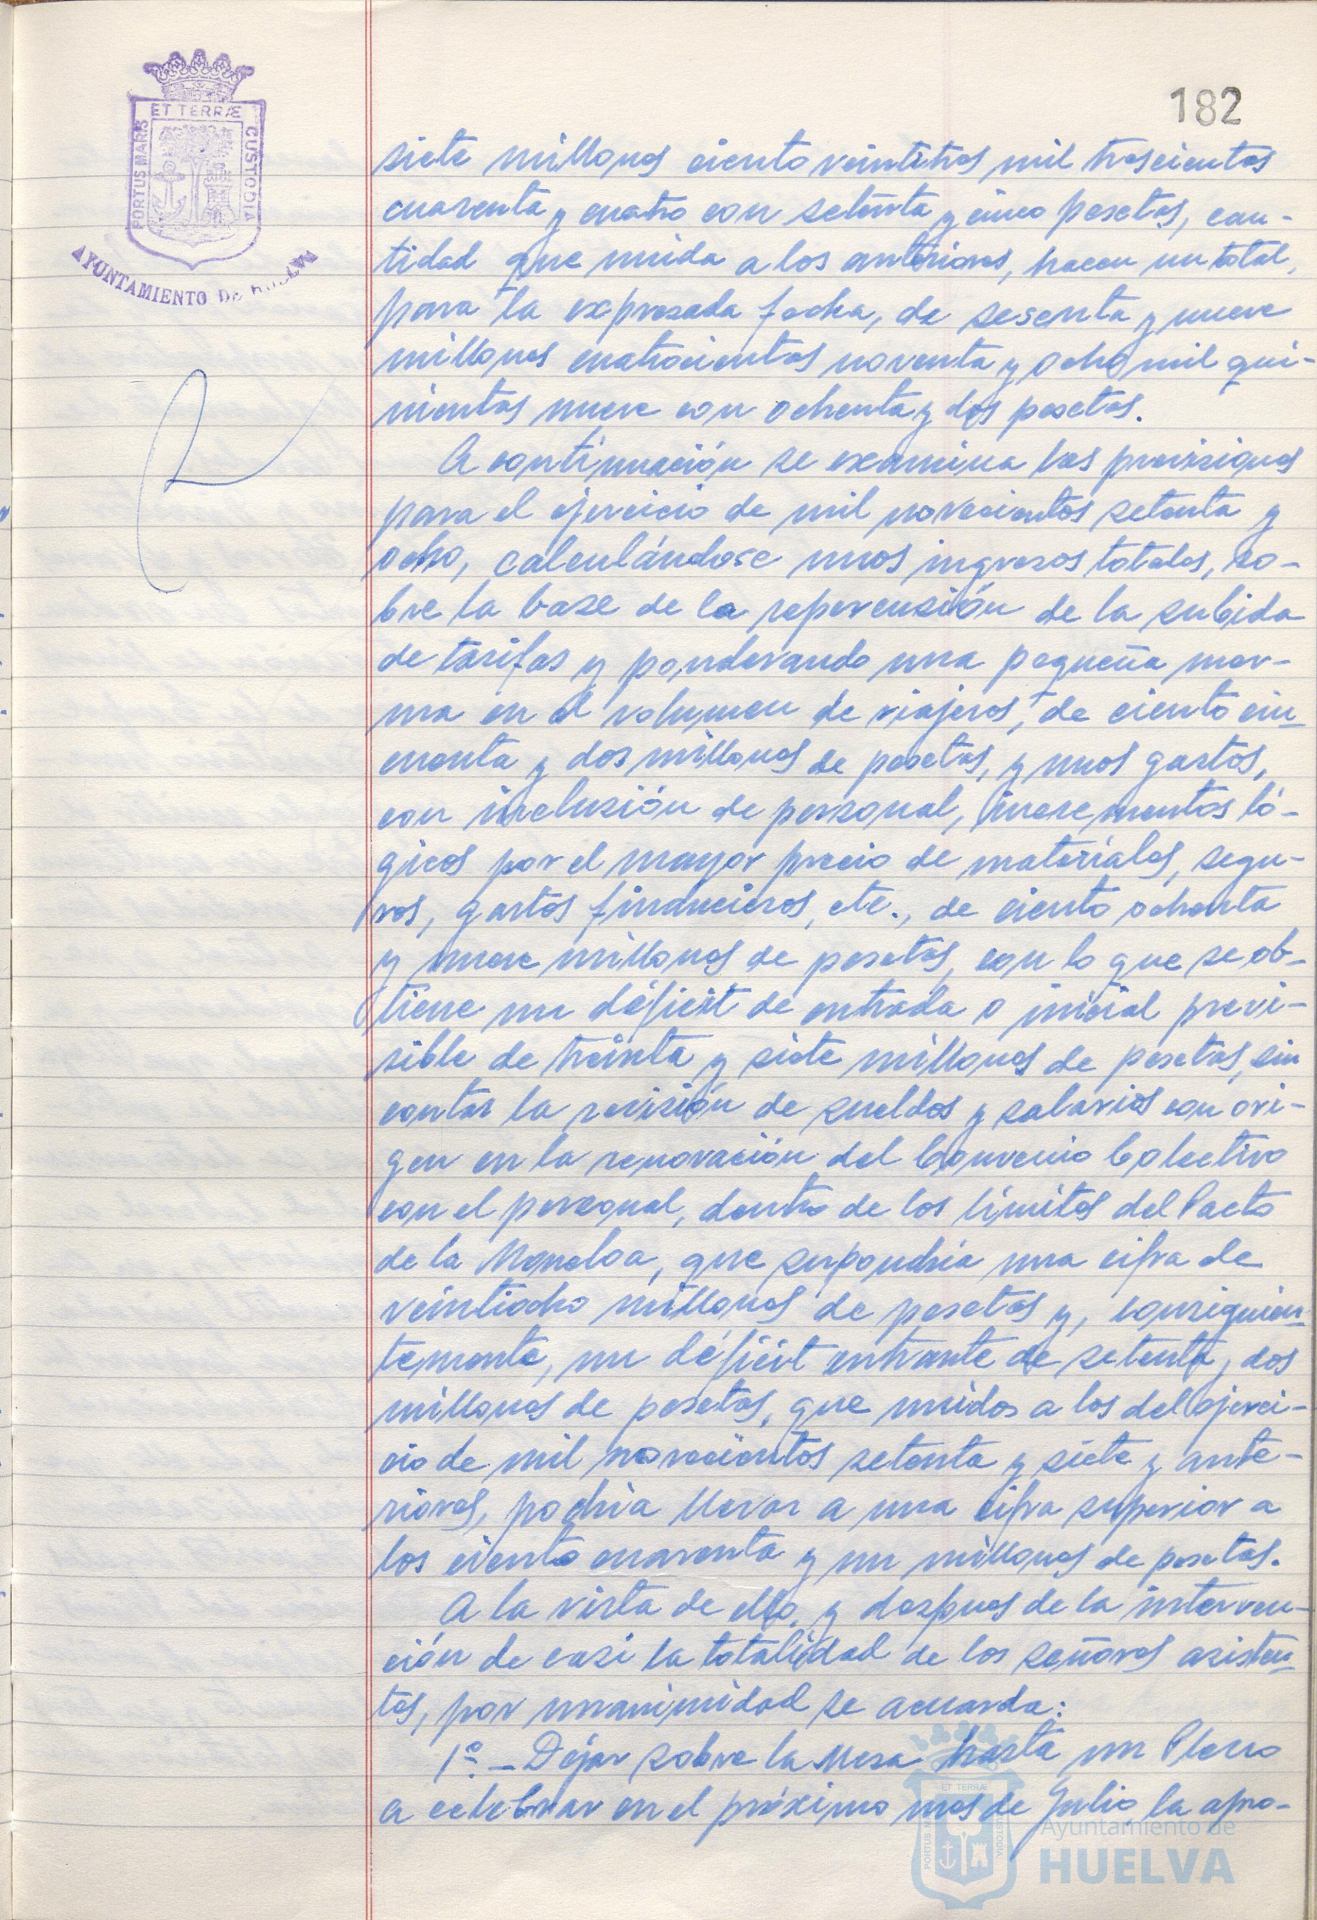 ET TERRÆ
PORTUS MARIS
CUSTODIA
AYUNTAMIENTO DE HUELVA
182
siete millones ciento veintitres mil trescientas
cuarenta y cuatro con setenta y cinco pesetas, can-
tidad que unida a los anteriores, hacen un total,
para la expresada fecha, de sesenta y nueve
millones cuatrocientas noventa y ocho mil qui-
nientas nueve con ochenta y dos pesetas.
A continuación se examina las previsiones
para el ejercicio de mil novecientos setenta y
ocho, calculándose unos ingresos totales, so-
bre la base de la repercusión de la subida
de tarifas y ponderando una pequeña mer-
ma en el volumen de viajeros, de ciento cin-
cuenta y dos millones de pesetas, y unos gastos,
con inclusión de personal, incrementos ló-
gicos por el mayor precio de materiales, segu-
ros, gastos financieros, etc., de ciento ochenta
y nueve millones de pesetas, con lo que se ob-
tiene un déficit de entrada o inicial previ-
sible de treinta y siete millones de pesetas, sin
contar la revisión de sueldos y salarios con ori-
gen en la renovación del Convenio Colectivo
con el personal, dentro de los límites del Pacto
de la Moncloa, que supondría una cifra de
veintiocho millones de pesetas y, consiguien-
temente, un déficit entrante de setenta y dos
millones de pesetas, que unidos a los del ejerci-
cio de mil novecientos setenta y siete y ante-
riores, podría llevar a una cifra superior a
los ciento cuarenta y un millones de pesetas.
A la vista de ello, y despues de la interven-
ción de casi la totalidad de los señores asisten-
tes, por unanimidad se acuerda:
1º.- Dejar sobre la Mesa hasta un Pleno
a celebrar en el próximo mes de Julio, la apro-
ET TERRÆ
CUSTODIA
Ayuntamiento de
HUELVA